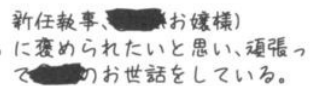 新任執事、お嬢様)
に褒められたいと思い、頑張っ
でのお世話をしている。